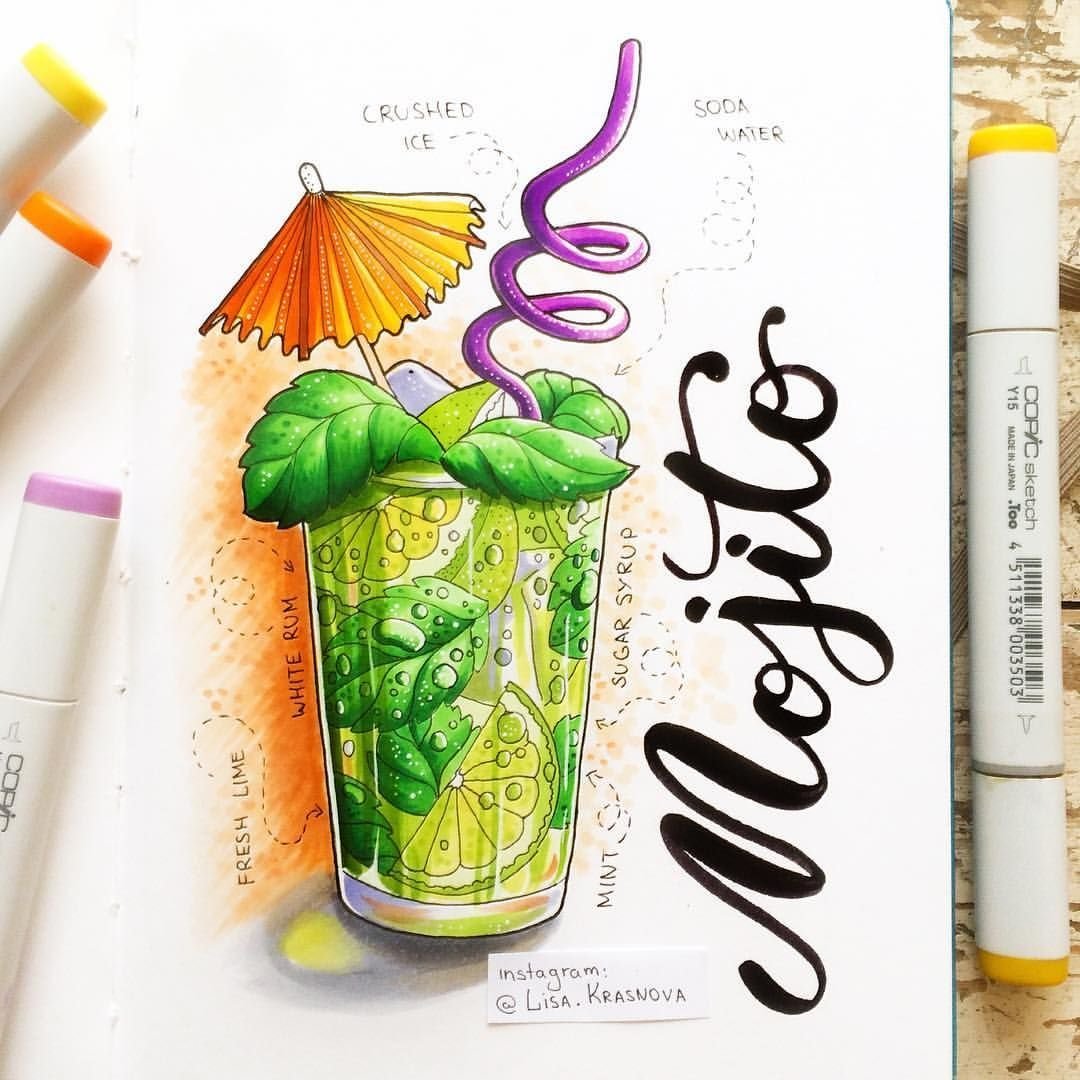 CRUSHED
ICE
SODA
WATER
Mojito
WHITE RUM
SUGAR SYRUP
FRESH LIME
MINT
instagram:
@ LISA.KRASNOVA
COPIC sketch
Y15 MADE IN JAPAN .Too
4 511338 003503
COPIC